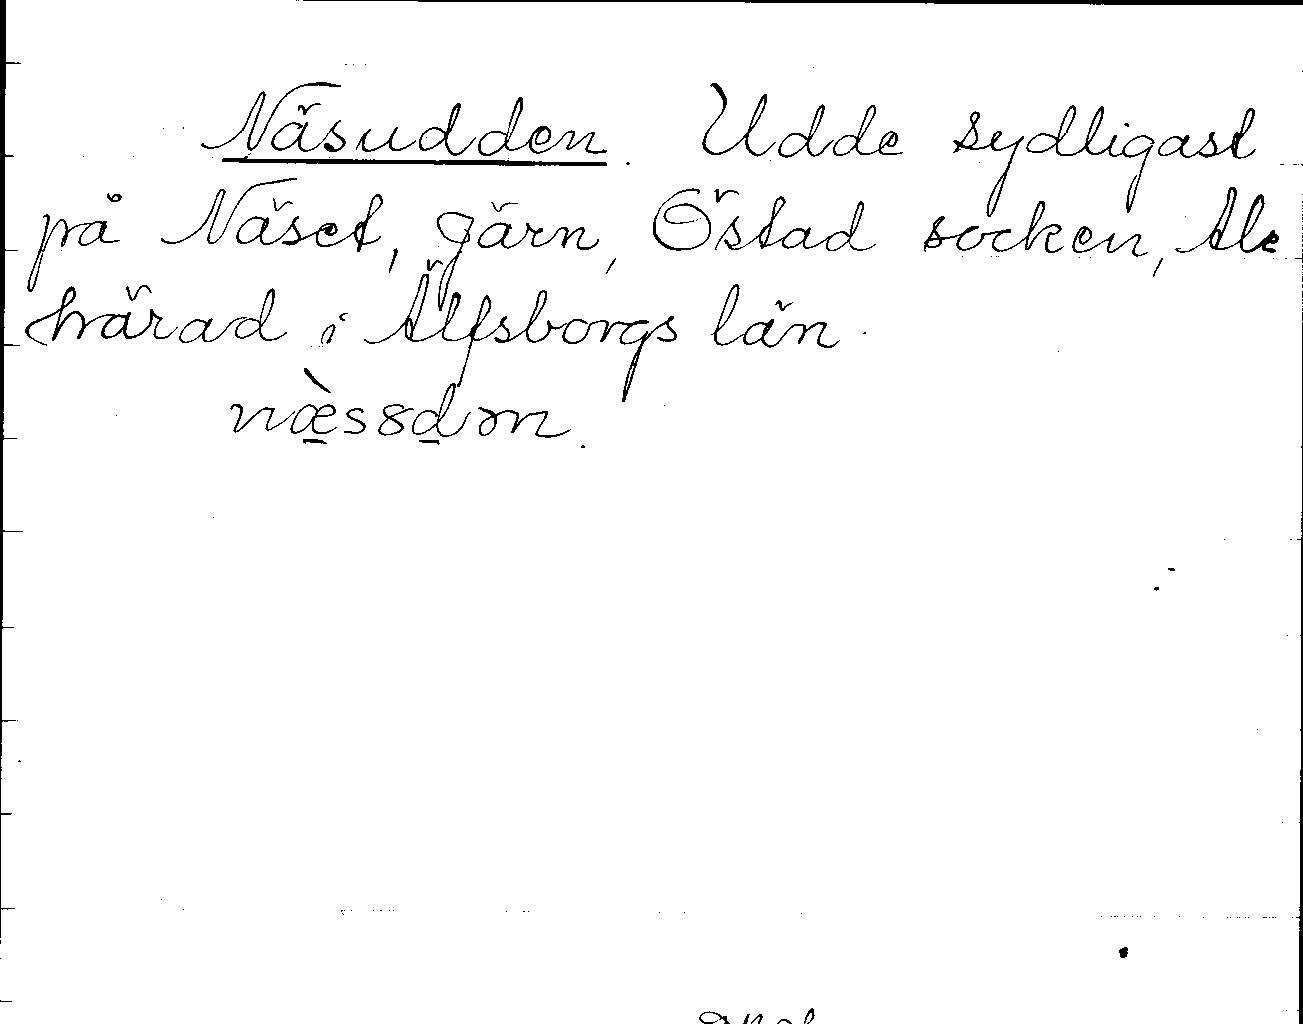 Näsudden. Udde sydligast
på Näset, Järn, Östad socken, Ale
härad i Älfsborgs län.
næ̀s8dən.